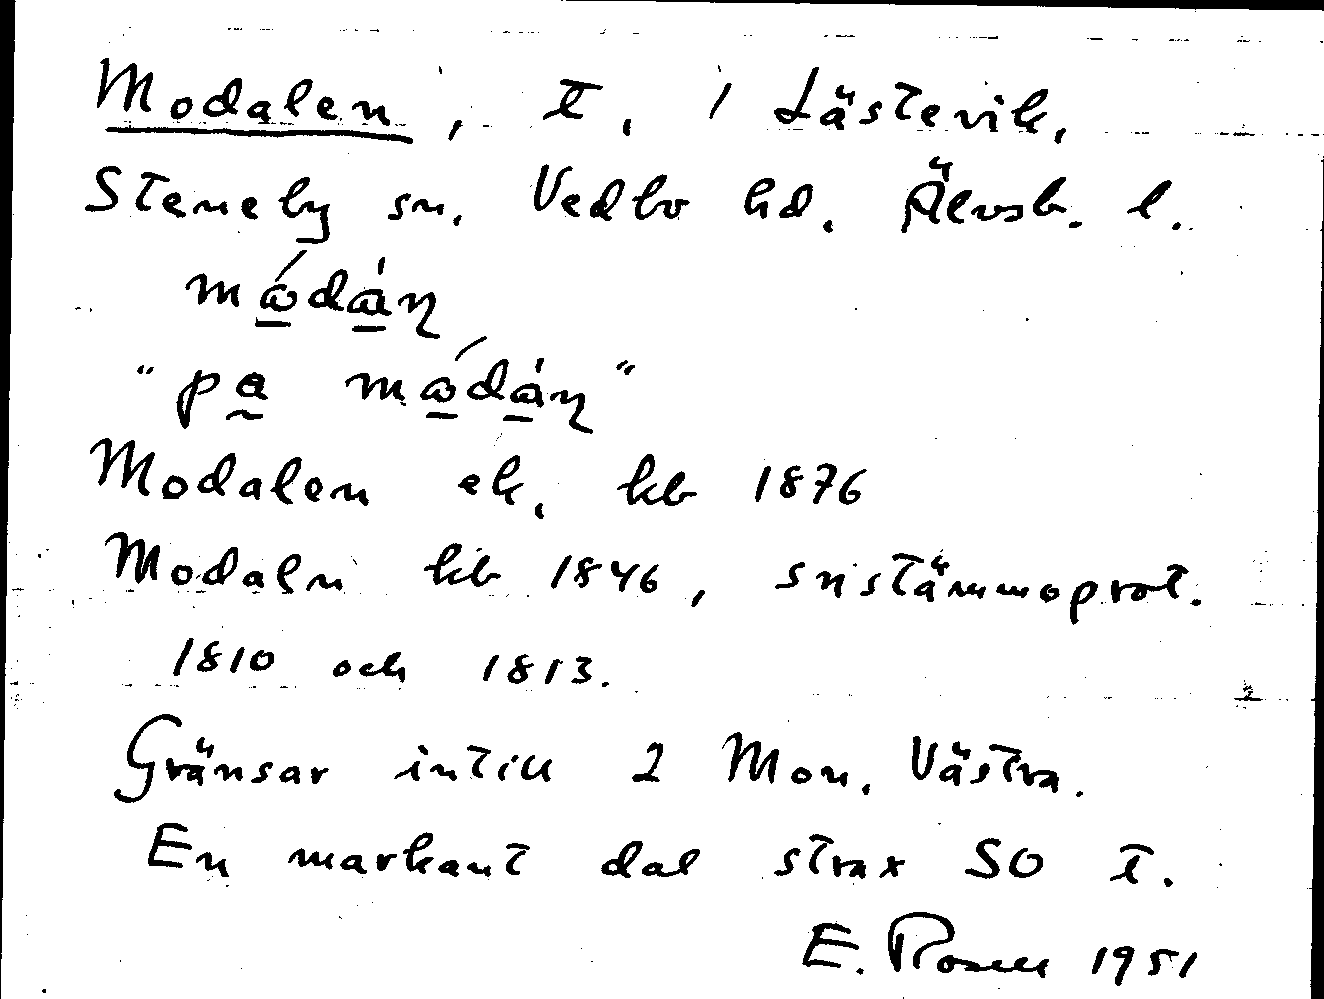 Modalen, t. 1 Lästevik,
Steneby sn. Vedbo hd. Älvsb. l.
"pa
Modalen ek. kb 1876
Modaln kb 1846, snstämmoprot.
1810 och 1813.
Gränsar intill 2 Mon, Västra.
En markant dal strax SO t.
E. Rosell 1951